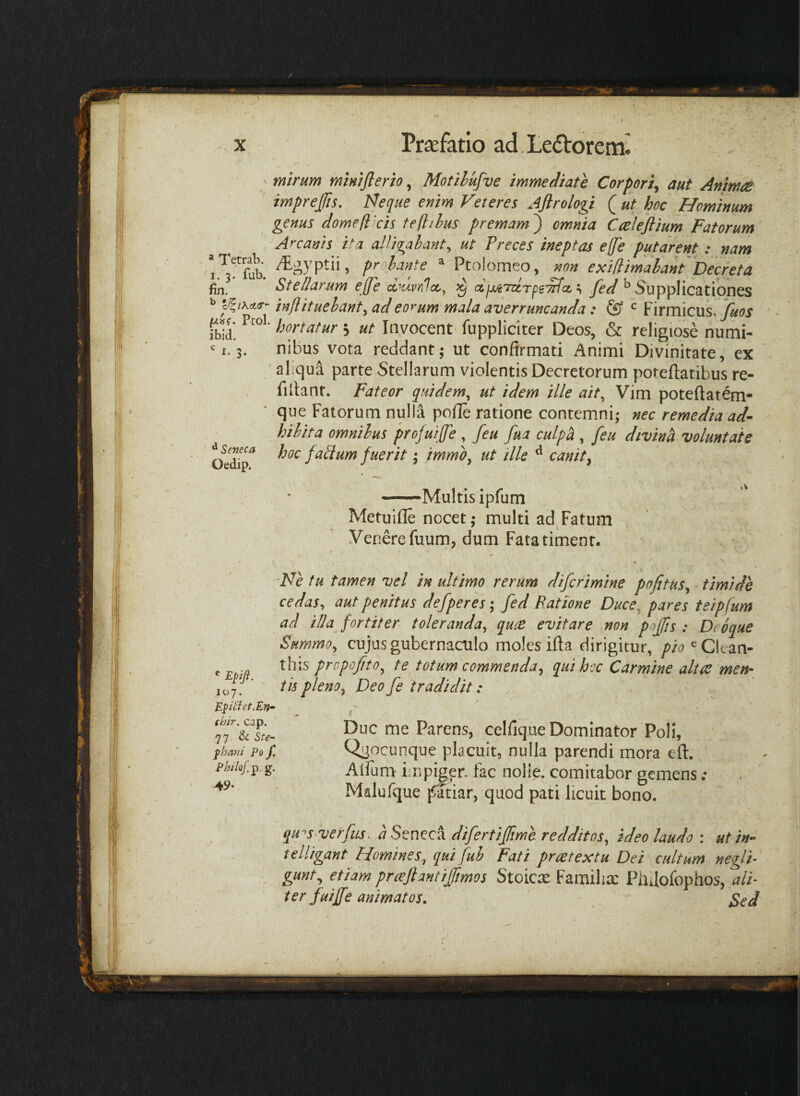 x Præfatio ad Lectorem.
mirum ministerio, Motibúsve immediatè Corpori, aut Animæ
impressis. Neque enim Veteres Astrologi (ut hoc Hominum
genus domesticis testibus premam) omnia Cælestium Fatorum
Arcanis ita alligabant, ut Preces ineptas esse putarent: nam
a Tetrab.
l. 3. sub.
fin.
Ægyptii, probante a Ptolomeo, non existimabant Decreta
Stellarum esse ἀνύντα, ϗ ἀμετάτρεπτα; sed b Supplicationes
b
Ptol.
ibid.
instituebant, ad eorum mala averruncanda: & c Firmicus, suos
hortatur; ut Invocent suppliciter Deos, & religiosè numi-
c 1. 3.
nibus vota reddant; ut confirmati Animi Divinitate, ex
aliquâ parte Stellarum violentis Decretorum potestatibus re-
sistant. Fateor quidem, ut idem ille ait, Vim potestatém-
que Fatorum nullâ posse ratione contemni; nec remedia ad-
hibita omnibus profuisse, seu sua culpâ, seu divinâ voluntate
d Seneca
Oedip.
hoc factum fuerit; immò, ut ille d canit,
——Multis ipsum
Metuisse nocet; multi ad Fatum
Venêre suum, dum Fata timent.
Ne tu tamen vel in ultimo rerum discrimine positus, timidè
cedas, aut penitus desperes; sed Ratione Duce, pares teipsum
ad illa fortiter toleranda, quæ evitare non possis: Deóque
Summo, cujus gubernaculo moles ista dirigitur, pio e Clean-
e Epist.
107.
this proposito, te totum commenda, qui hoc Carmine altæ men-
tis pleno, Deo se tradidit:
Epictet. En-
chir. cap.
77 & Ste-
phani Po s.
Philos. p. g.
49.
Duc me Parens, celsique Dominator Poli,
Quocunque placuit, nulla parendi mora est.
Assum impiger. fac nolle. comitabor gemens:
Malusque patiar, quod pati licuit bono.
quos versus. à Senecâ disertissimè redditos, ideo laudo: ut in-
telligant Homines, qui sub Fati prætextu Dei cultum negli-
gunt, etiam præstantissimos Stoicæ Familiæ Philosophos, ali-
ter fuisse animatos.
Sed